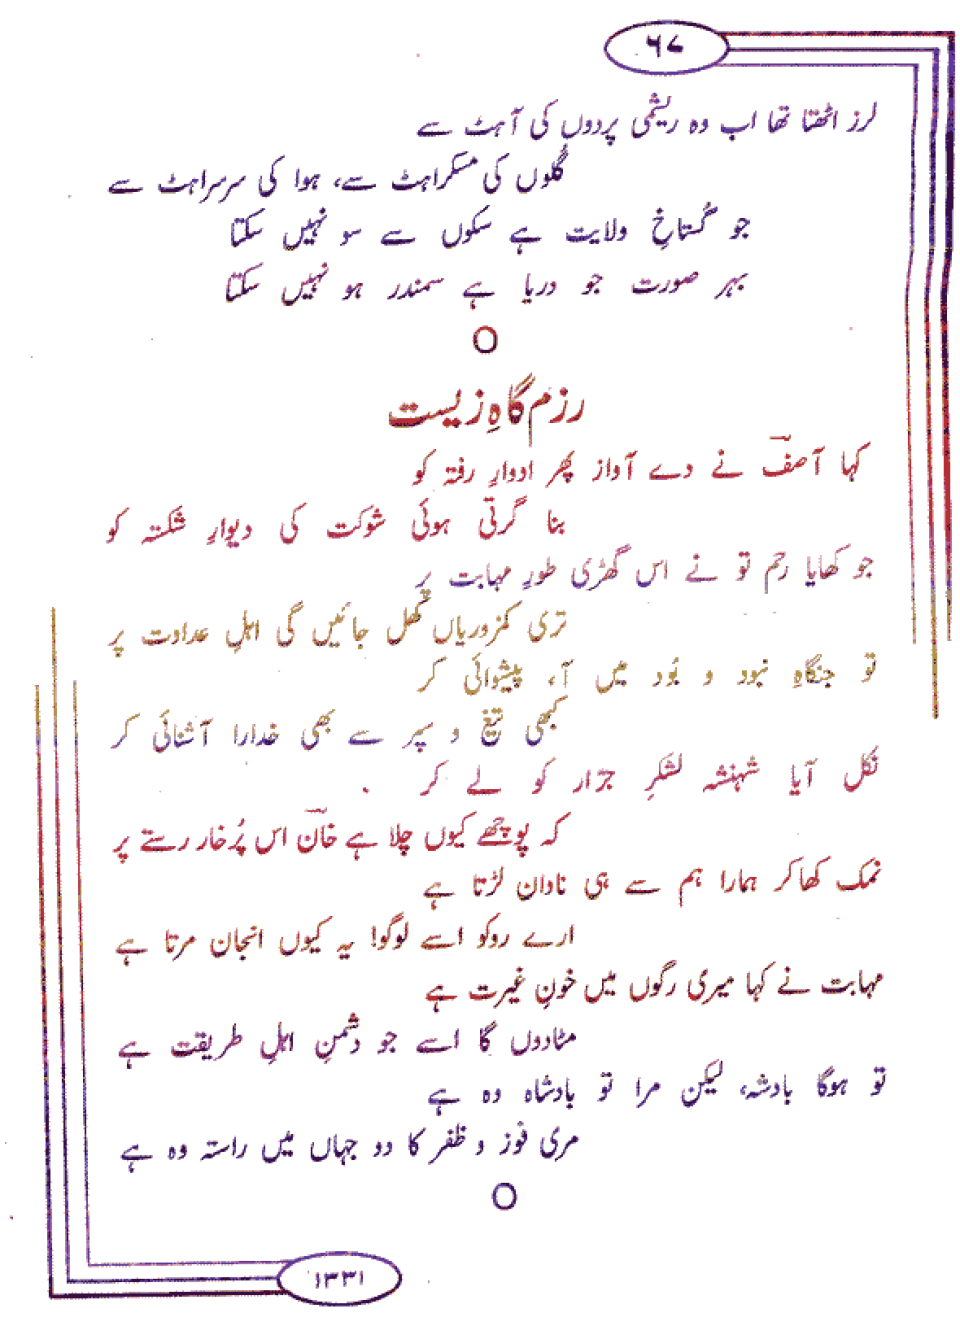 ۶۷
لرز اٹھتا تھا اب وہ ریشمی پردوں کی آہٹ سے
گُلوں کی مسکراہٹ سے، ہوا کی سرسراہٹ سے
جو گستاخِ ولایت ہے سکوں سے سو نہیں سکتا
بہر صورت جو دریا ہے سمندر ہو نہیں سکتا
O
رزم گاہِ زیست
کہا آصفؔ نے دے آواز پھر ادوارِ رفتہ کو
بنا گرتی ہوئی شوکت کی دیوارِ شکستہ کو
جو کھایا رحم تو نے اس گھڑی طورِ مہابت پر
تری کمزوریاں کُھل جائیں گی اہلِ عداوت پر
تو جنگاہِ نبود و بُود میں آ، پیشوائی کر
کبھی تیغ و سپر سے بھی خدارا آشنائی کر
نکل آیا شہنشہ لشکرِ جرّار کو لے کر
کہ پوچھے کیوں چلا ہے خانؔ اس پُرخار رستے پر
نمک کھاکر ہمارا ہم سے ہی نادان لڑتا ہے
ارے روکو اسے لوگو! یہ کیوں انجان مرتا ہے
مہابت نے کہا میری رگوں میں خونِ غیرت ہے
مٹادوں گا اسے جو دشمنِ اہلِ طریقت ہے
تو ہوگا بادشہ، لیکن مرا تو بادشاہ وہ ہے
مری فوز و ظفر کا دو جہاں میں راستہ وہ ہے
O
۱۳۳۱